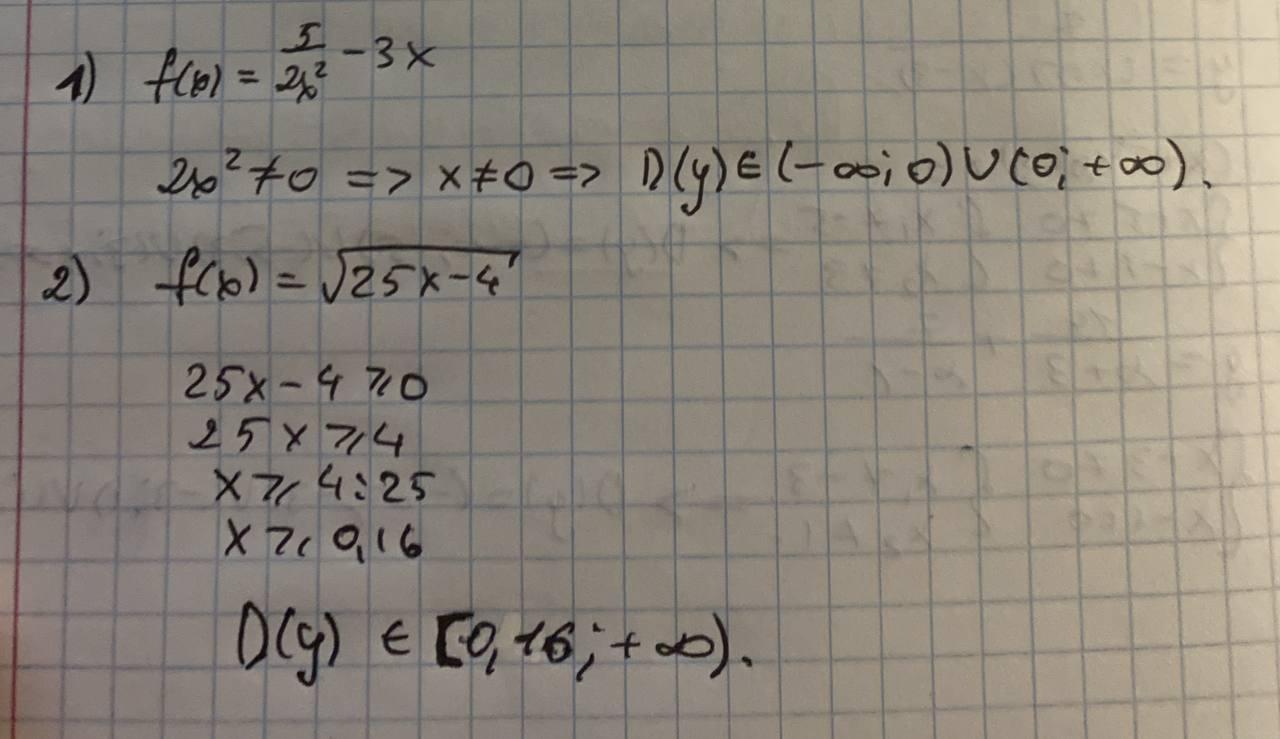 1) f(x) = 5/2x² - 3x
2x² ≠ 0 => x ≠ 0 => D(y) ∈ (-∞; 0) ∪ (0; +∞).
2) f(x) = √(25x - 4)
25x - 4 ⩾ 0
25x ⩾ 4
x ⩾ 4:25
x ⩾ 0,16
D(y) ∈ [0,16; +∞).